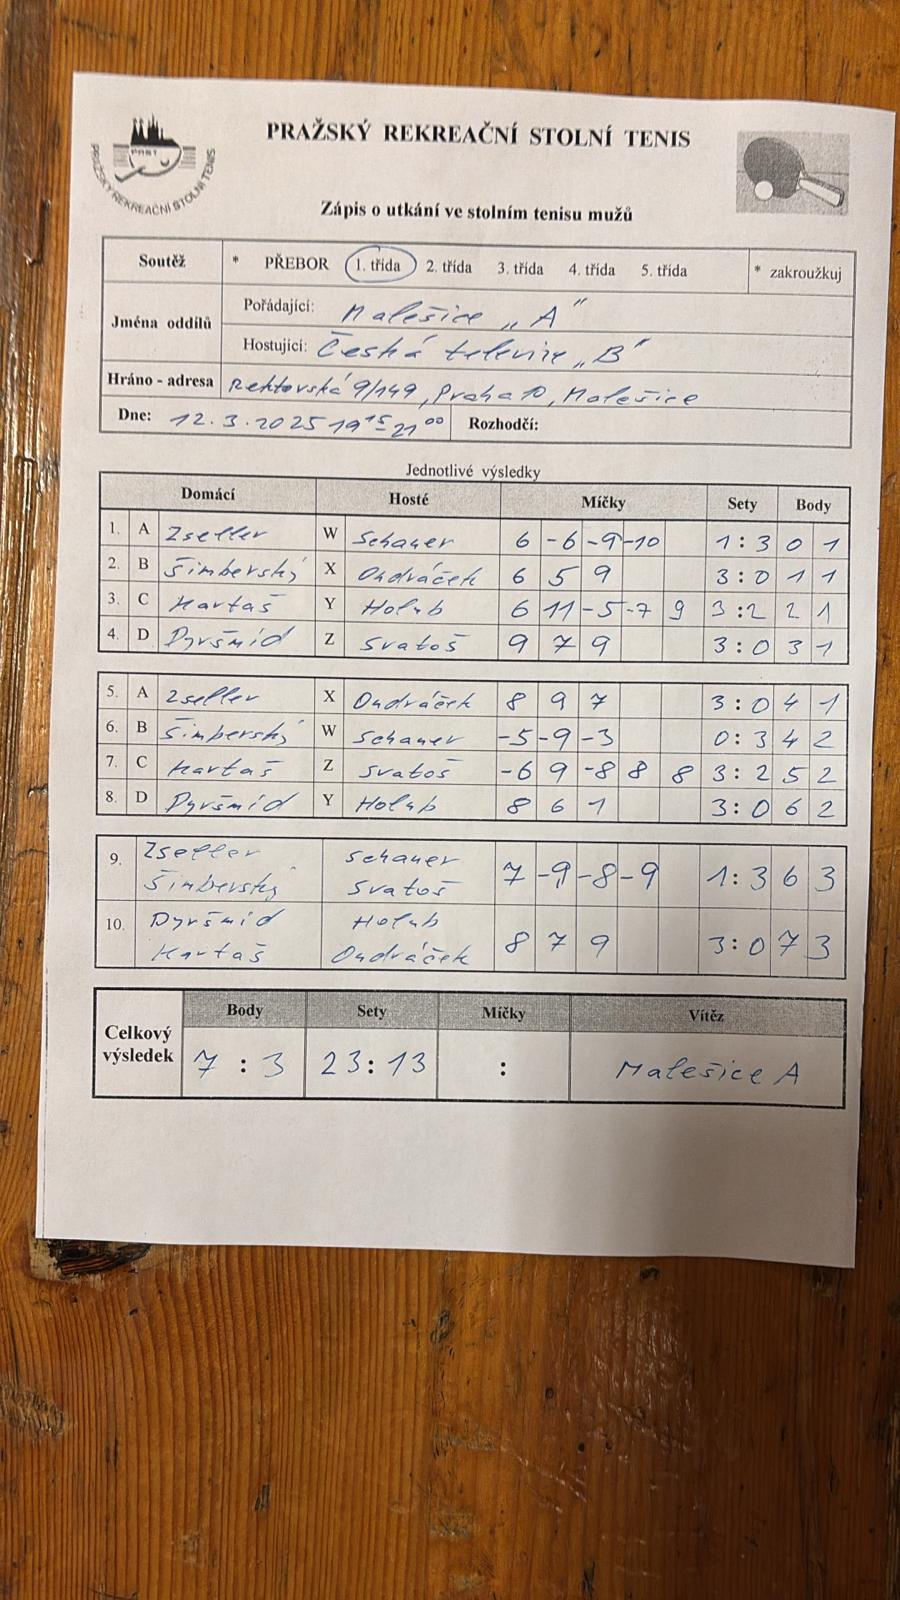 PRAŽSKÝ REKREAČNÍ STOLNÍ TENIS
PRST
PRAŽSKÝ REKREAČNÍ STOLNÍ TENIS
Zápis o utkání ve stolním tenisu mužů
Soutěž * PŘEBOR 1. třída 2. třída 3. třída 4. třída 5. třída * zakroužkuj
Jména oddílů
Pořádající: Malešice „A"
Hostující: Česká televize „B"
Hráno - adresa Rektorská 9/149, Praha 10, Malešice
Dne: 12.3.2025 19¹⁵-21⁰⁰ Rozhodčí:
Jednotlivé výsledky
Domácí Hosté Míčky Sety Body
1. A Zseller W Schauer 6 -6 -9 -10 1:3 0 1
2. B Šimberský X Ondráček 6 5 9 3:0 1 1
3. C Kartaš Y Holub 6 11 -5 -7 9 3:2 2 1
4. D Dyršmíd Z Svatoš 9 7 9 3:0 3 1
5. A Zseller X Ondráček 8 9 7 3:0 4 1
6. B Šimberský W Schauer -5 -9 -3 0:3 4 2
7. C Kartaš Z Svatoš -6 9 -8 8 8 3:2 5 2
8. D Dyršmíd Y Holub 8 6 1 3:0 6 2
9. Zseller Schauer 7 -9 -8 -9 1:3 6 3
Šimberský Svatoš
10. Dyršmíd Holub 8 7 9 3:0 7 3
Kartaš Ondráček
Celkový výsledek
Body Sety Míčky Vítěz
7 : 3 23:13 : Malešice A